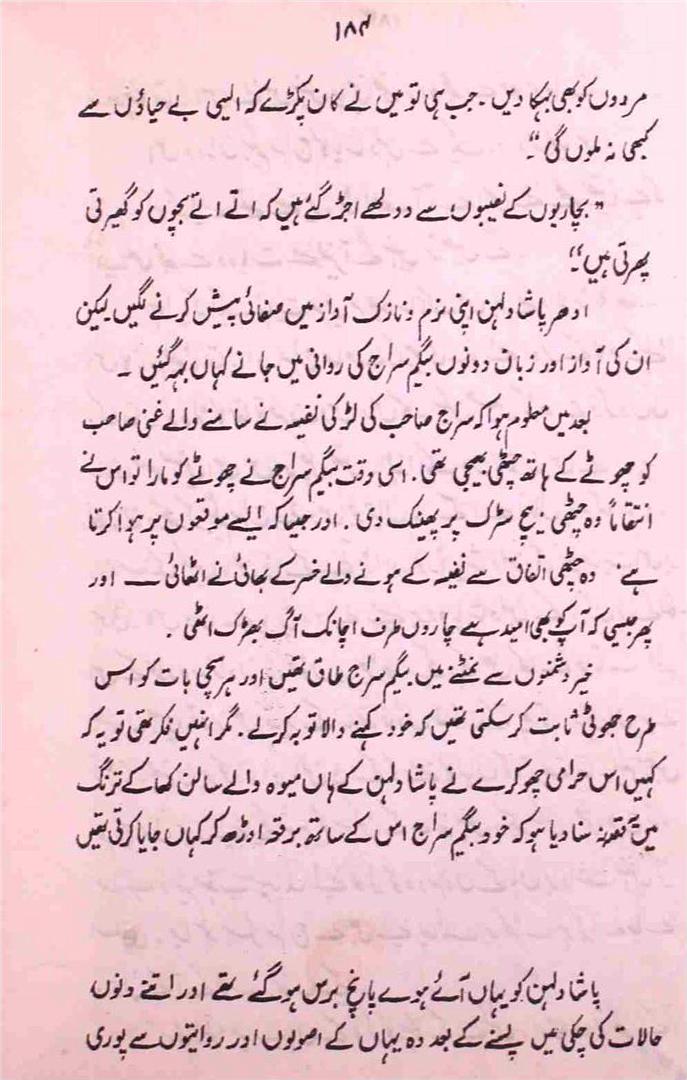 ۱۸۴
مردوں کو بھی بہکا دیں۔ جب ہی تو میں نے کان پکڑے کہ ایسی بے حیاؤں سے
کبھی نہ ملوں گی"۔
"بچاریوں کے نصیبوں سے دولھے اجڑ گئے ہیں کہ اتے اتے بچوں کو گھیرتی
پھرتی ہیں"۔
ادھر پاشا دلہن اپنی نرم و نازک آواز میں صفائی پیش کرنے لگیں لیکن
ان کی آواز اور زبان دونوں بیگم سراج کی روانی میں جانے کہاں بہہ گئیں ۔
بعد میں معلوم ہوا کہ سراج صاحب کی لڑکی نفیسہ نے سامنے والے غنی صاحب
کو چھوٹے کے ہاتھ چٹھی بھیجی تھی۔ اسی وقت بیگم سراج نے چھوٹے کو مارا تو اس نے
انتقاماً وہ چٹھی بیچ سڑک پر پھینک دی ۔ اور جیسا کہ ایسے موقعوں پر ہوا کرتا
ہے۔ وہ چٹھی اتفاق سے نفیسہ کے ہونے والے خسر کے بھائی نے اٹھائی — اور
پھر جیسی کہ آپ کو بھی امید ہے چاروں طرف اچانک آگ بھڑک اٹھی ۔
خیر دشمنوں سے نمٹنے میں بیگم سراج طاق تھیں اور ہر سچی بات کو اس
طرح جھوٹی ثابت کر سکتی تھیں کہ خود کہنے والا توبہ کر لے۔ مگر انہیں فکر تھی تو یہ کہ
کہیں اس حرامی چھوکرے نے پاشا دلہن کے ہاں میوہ والے سالن کھا کے ترنگ
میں یہ قصہ نہ سنا دیا ہو کہ خود بیگم سراج اس کے ساتھ برقعہ اوڑھ کر کہاں جایا کرتی تھیں
پاشا دلہن کو یہاں آئے ہوے پانچ برس ہو گئے تھے اور اتنے دنوں
حالات کی چکی میں پسنے کے بعد وہ یہاں کے اصولوں اور روایتوں سے پوری